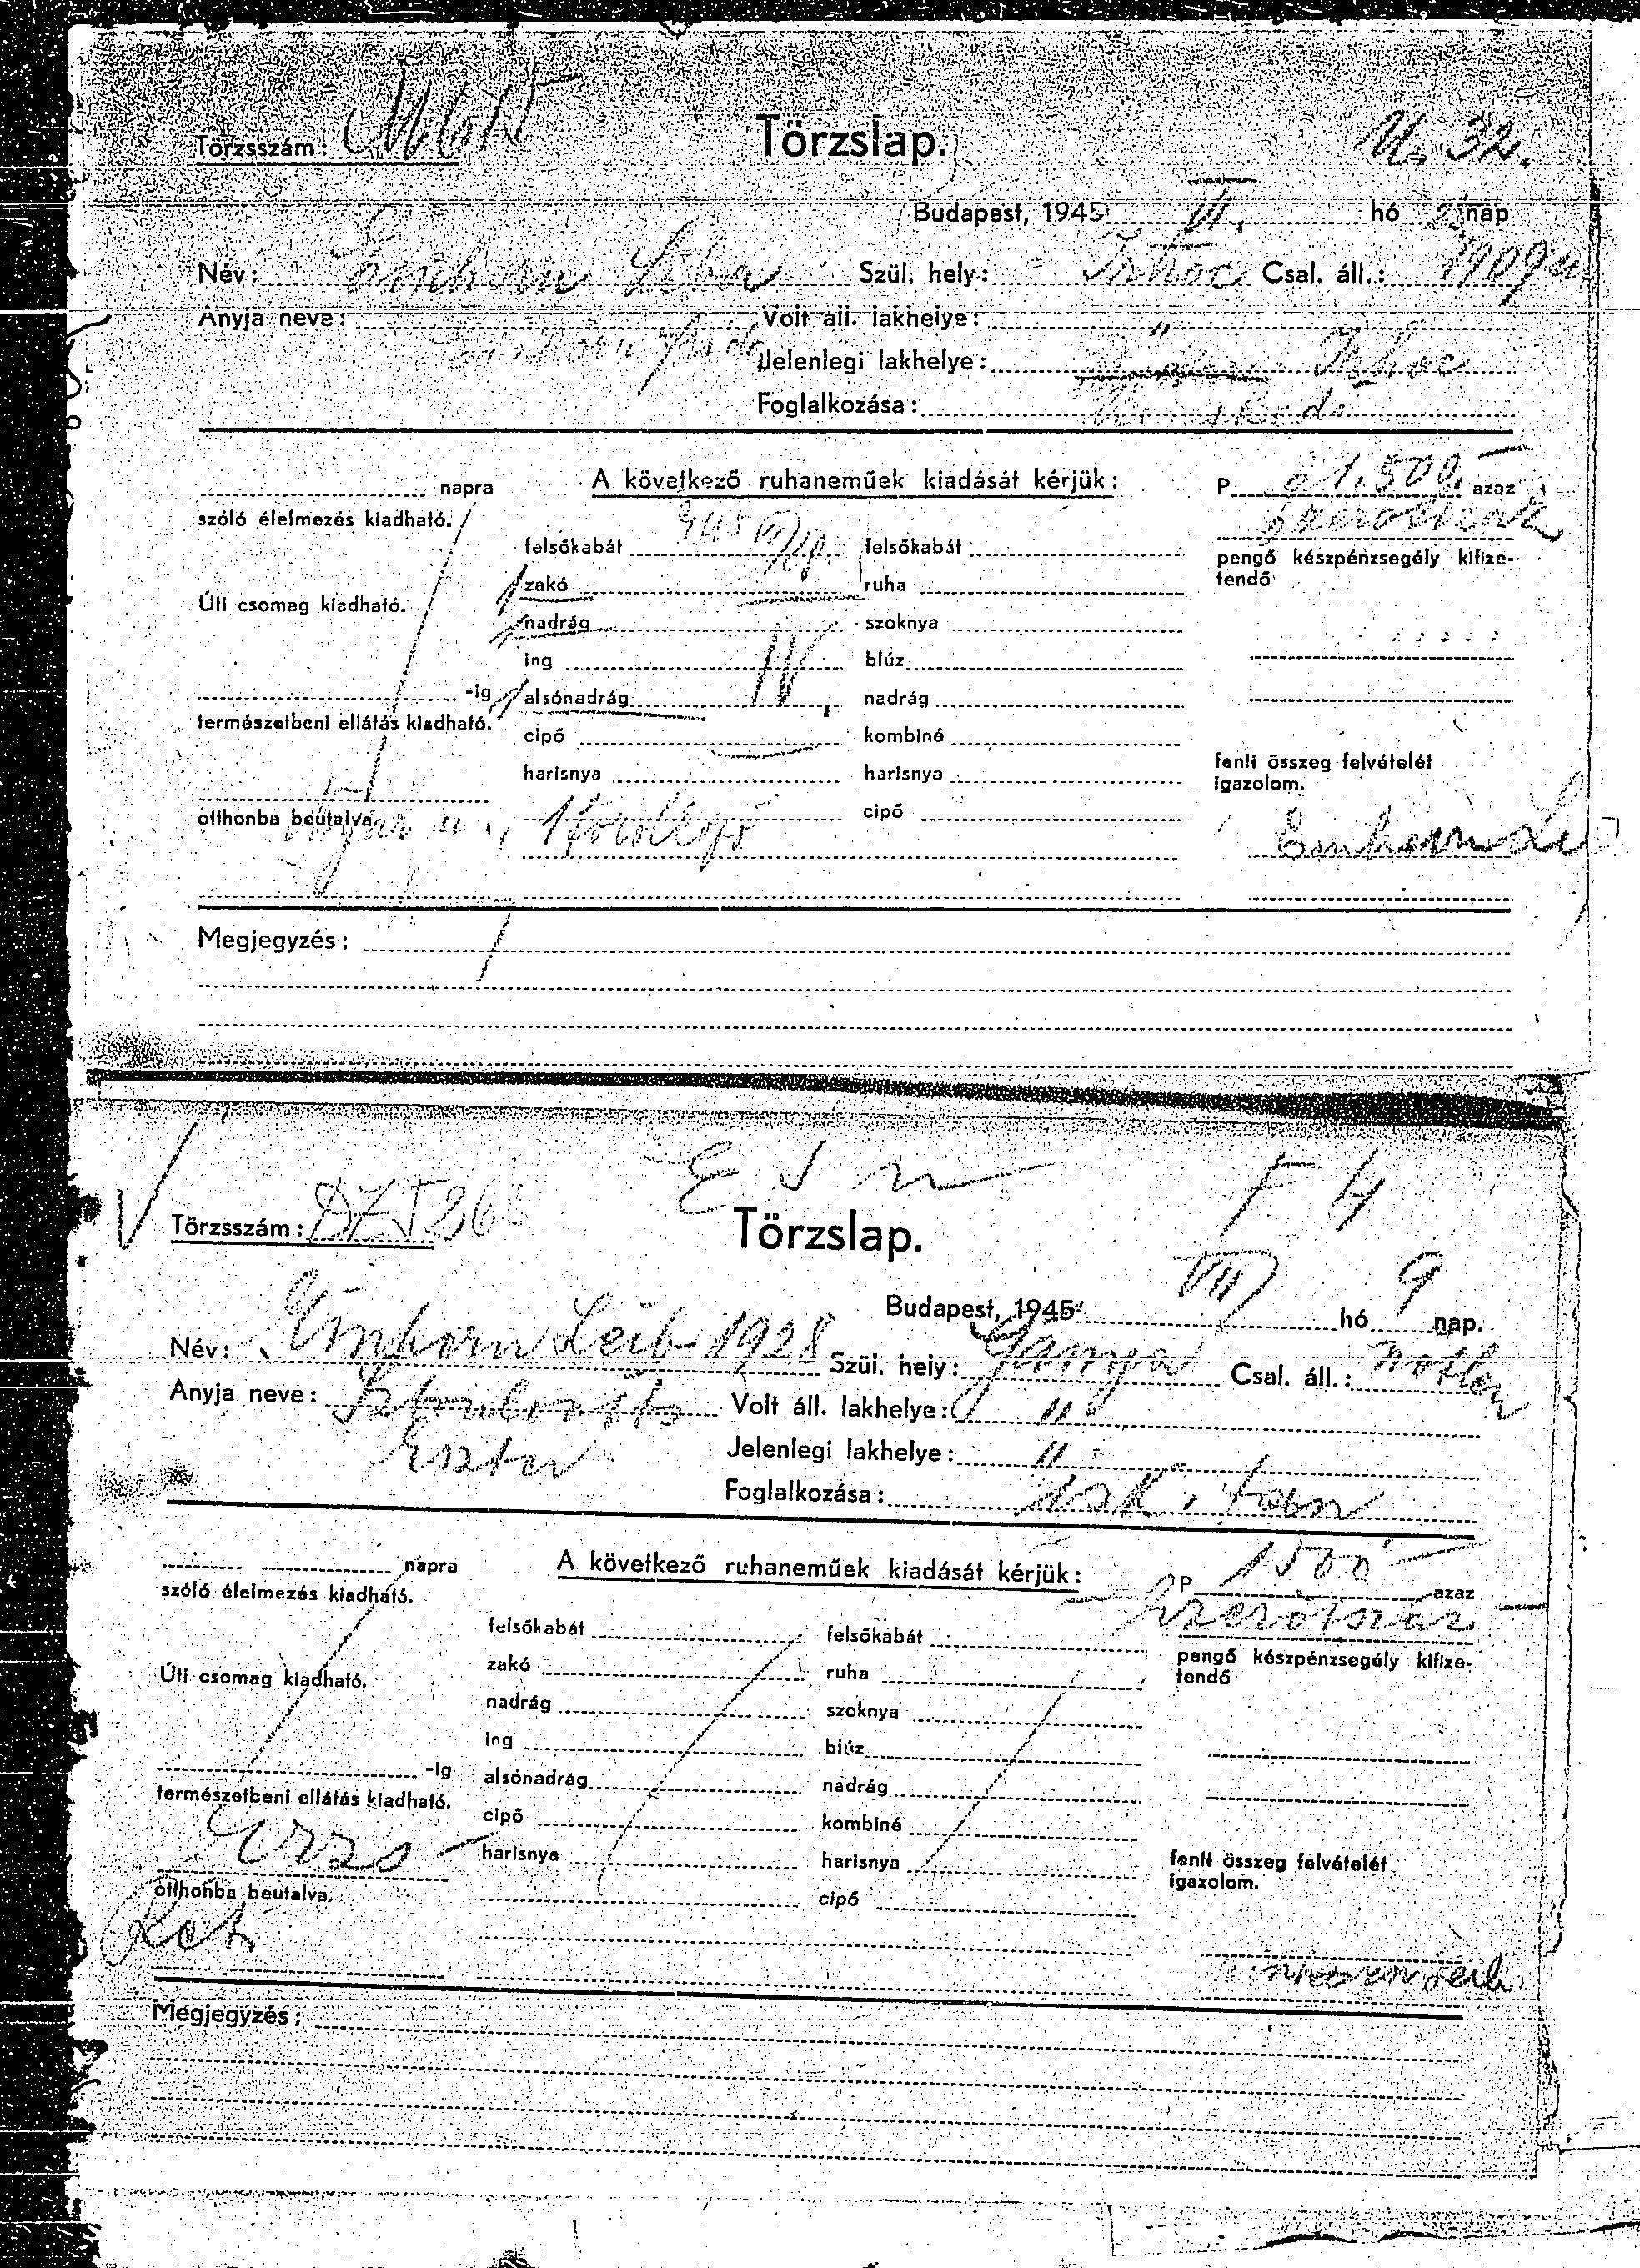 Törzsszám:
Törzslap.
32.
Budapest, 1945 VI. hó 23 nap
Név: Einhorn Liba Szül. hely: Irhoc Csal. áll.: 1909
Anyja neve: Volt áll. lakhelye: "
Jelenlegi lakhelye: Irhoc
Foglalkozása:
napra A következő ruhaneműek kiadását kérjük: P 1.500 azaz
szóló élelmezés kiadható.
felsőkabát felsőkabát
pengő készpénzsegély kifizetendő
Úti csomag kiadható. 1 zakó ruha
1 nadrág szoknya
ing blúz
-ig 1 alsónadrág nadrág
természetbeni ellátás kiadható.
cipő kombiné
harisnya harisnya
fenti összeg felvételét igazolom.
otthonba beutalva. cipő
Megjegyzés:
E J n
F 4
Törzsszám:
Törzslap.
Budapest, 1945 VII hó 9 nap.
Név: Einhorn Leib 1928 Szül. hely: Gánya Csal. áll.: nőtlen
Anyja neve: Volt áll. lakhelye: "
Eszter Jelenlegi lakhelye: "
Foglalkozása: isk. tan
napra A következő ruhaneműek kiadását kérjük: P 1500 azaz
szóló élelmezés kiadható. Ezerötszáz
felsőkabát felsőkabát
pengő készpénzsegély kifizetendő
Úti csomag kiadható. zakó ruha
nadrág szoknya
ing blúz
-ig alsónadrág nadrág
természetbeni ellátás kiadható.
cipő kombiné
harisnya harisnya
fenti összeg felvételét igazolom.
otthonba beutalva. cipő
Einhorn Leib
Megjegyzés: